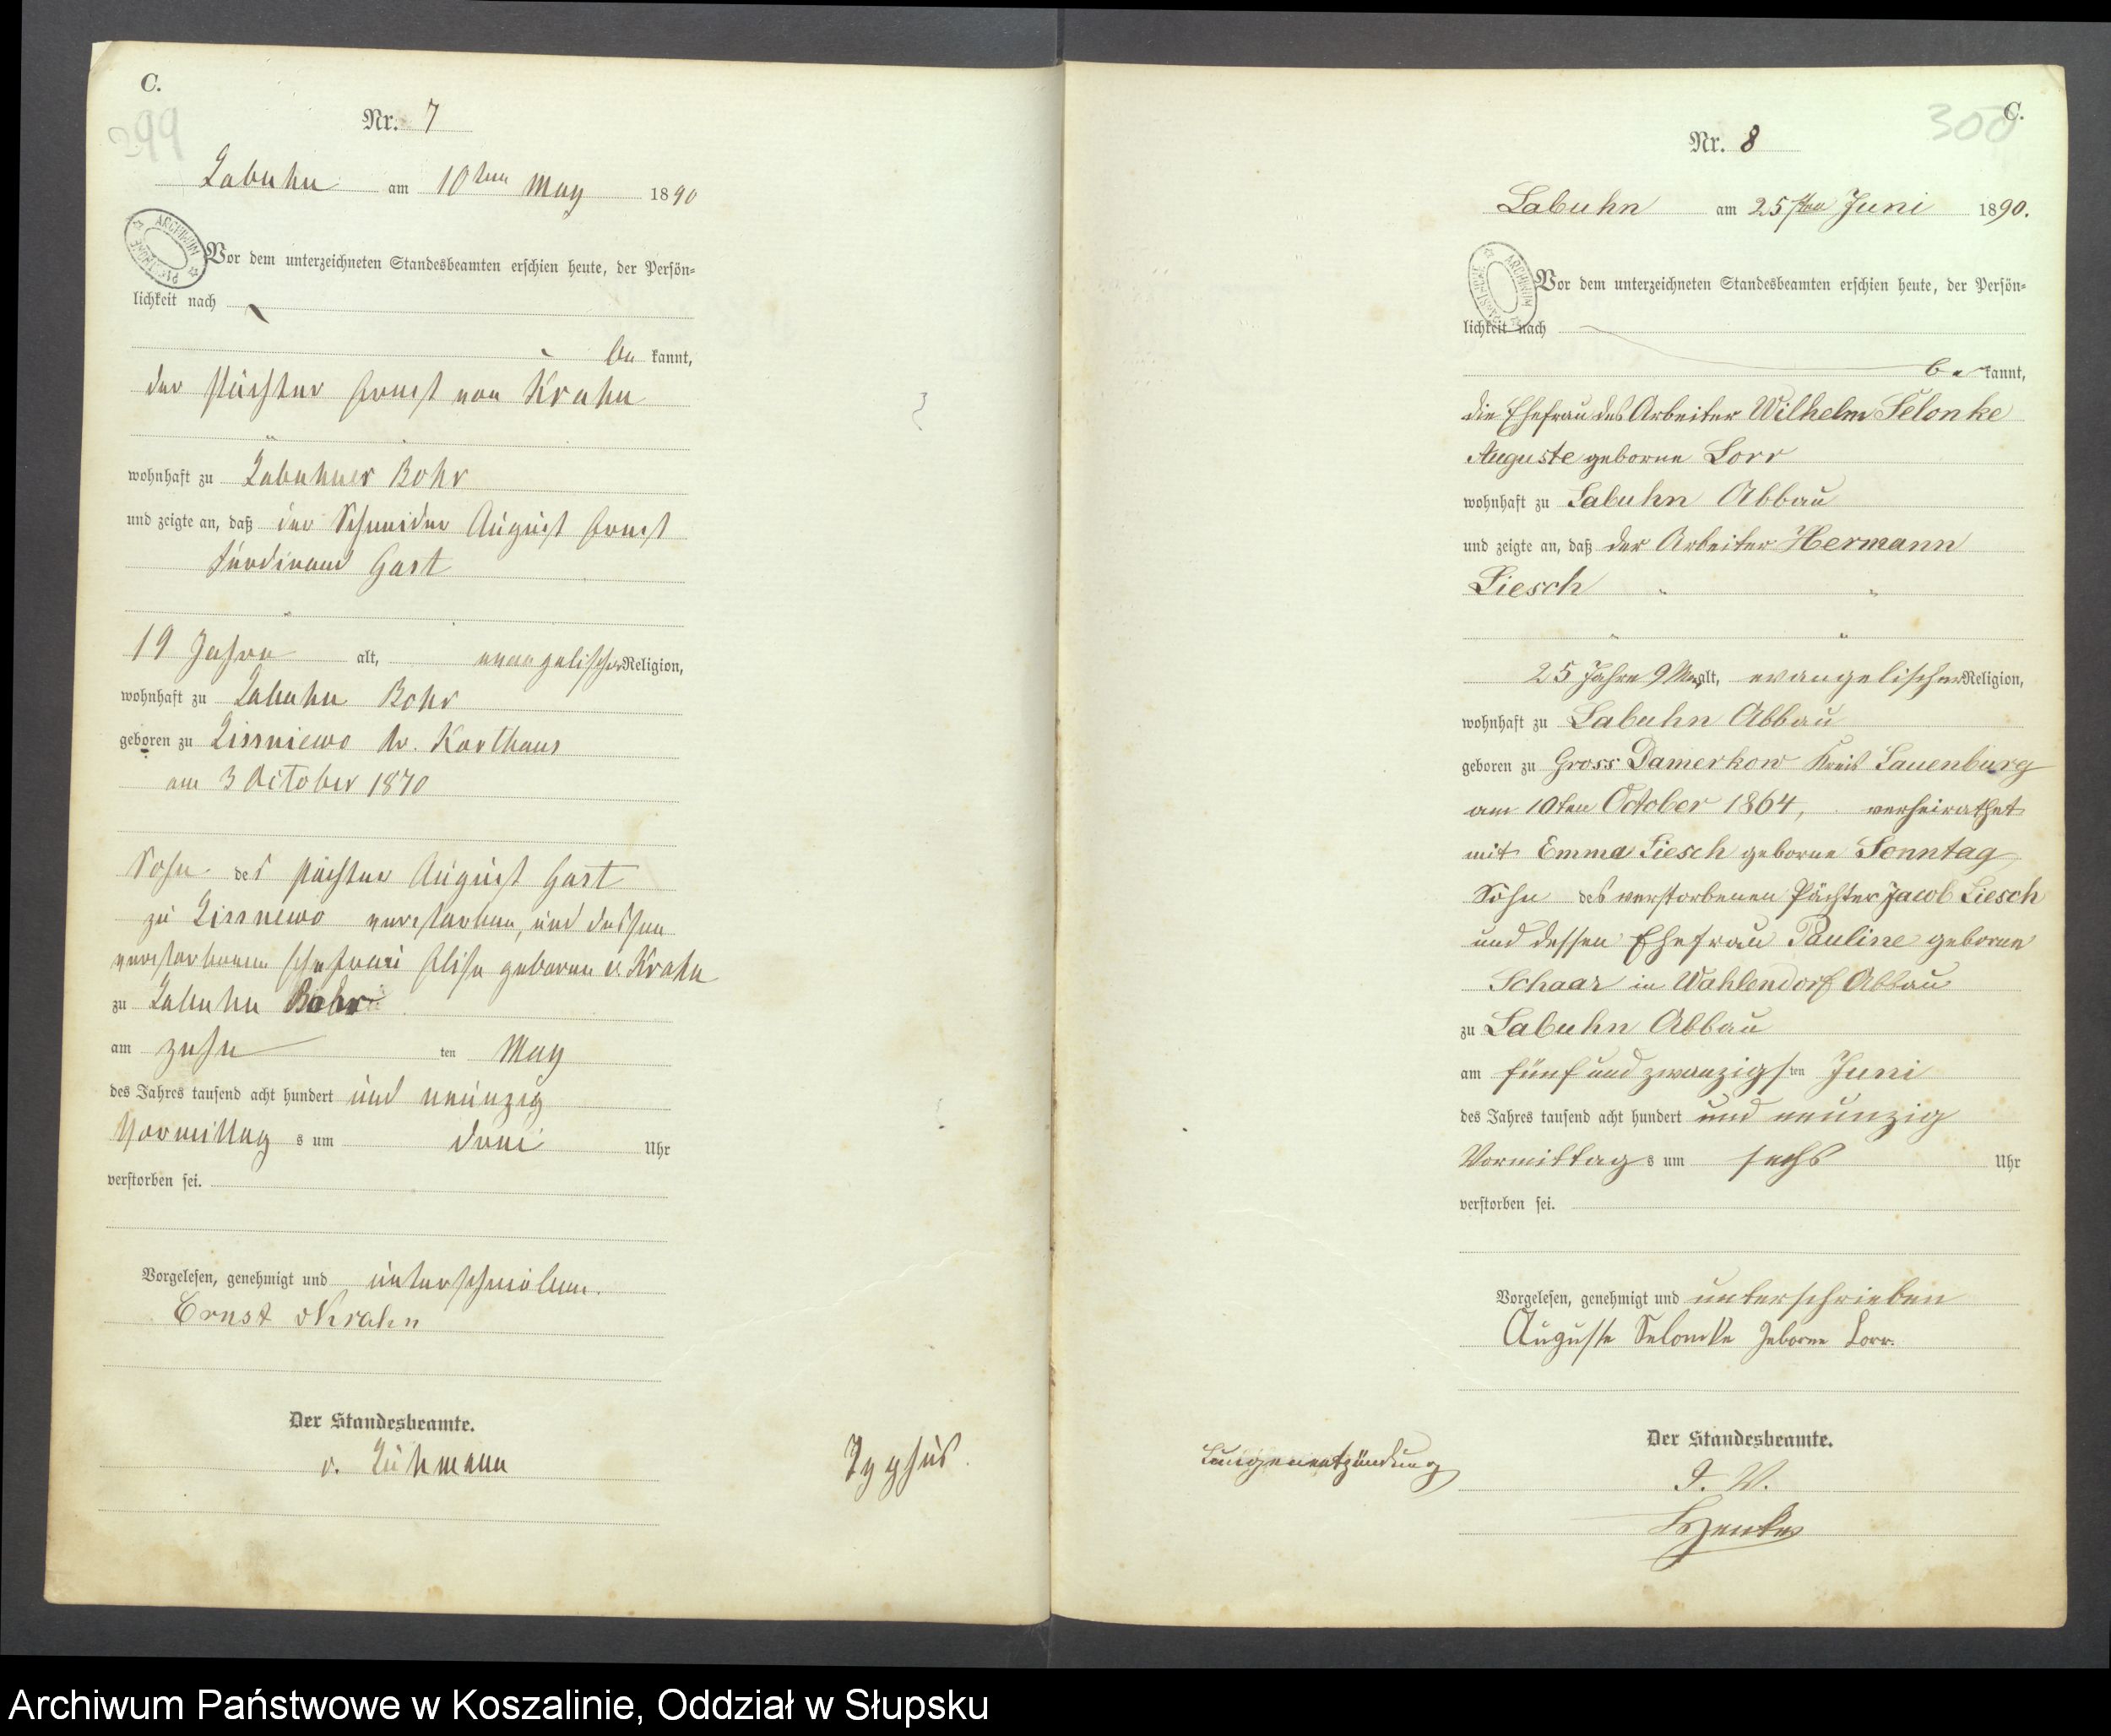 C.
299
Nr. 7
Labuhn am 10ten May 1890
ARCHIWUM PAŃSTWOWE
Vor dem unterzeichneten Standesbeamten erschien heute, der Persön-
lichkeit nach
be kannt,
der Pächter Ernst von Krahn
wohnhaft zu Labuhner Bohr
und zeigte an, daß der Schneider August Ernst
Ferdinand Gast
19 Jahre alt, evangelischer Religion,
wohnhaft zu Labuhn Bohr
geboren zu Lissniewo Kr. Karthaus
am 3 October 1870
Sohn des Pächter August Gast
zu Lissnewo verstorben, und dessen
verstorbenen Ehefrau Elise geboren v. Krahn
zu Labuhn Bohr
am zehn ten May
des Jahres tausend acht hundert und neunzig
Vormittag s um drei Uhr
verstorben sei.
Vorgelesen, genehmigt und unterschrieben.
Ernst vKrahn
Der Standesbeamte.
v. Lühmann
Typhus.
300
C.
Nr. 8
Labuhn am 25sten Juni 1890.
ARCHIWUM PAŃSTWOWE
Vor dem unterzeichneten Standesbeamten erschien heute, der Persön-
lichkeit nach
be kannt,
die Ehefrau des Arbeiter Wilhelm Selonke
Auguste geborne Lorr
wohnhaft zu Labuhn Abbau
und zeigte an, daß der Arbeiter Hermann
Liesch
25 Jahre 9 Mon alt, evangelischer Religion,
wohnhaft zu Labuhn Abbau
geboren zu Gross Damerkow Kreis Lauenburg
am 10ten October 1864, verheirathet
mit Emma Liesch geborne Sonntag
Sohn des verstorbenen Pächter Jacob Liesch
und dessen Ehefrau Pauline geborne
Schaar in Wahlendorf Abbau
zu Labuhn Abbau
am fünf und zwanzigs ten Juni
des Jahres tausend acht hundert und neunzig
Vormittag s um sechs Uhr
verstorben sei.
Vorgelesen, genehmigt und unterschrieben
Auguste Selonke geborne Lorr.
Lungenentzündung
Der Standesbeamte.
I. V.
Archiwum Państwowe w Koszalinie, Oddział w Słupsku